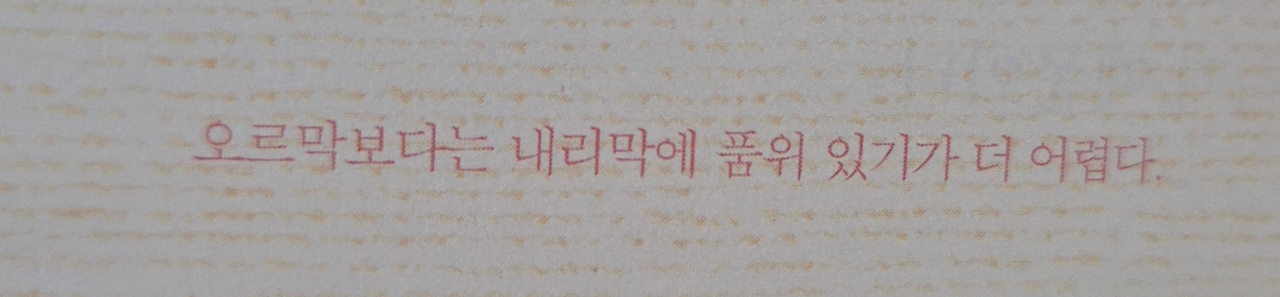 오르막보다는 내리막에 품위 있기가 더 어렵다.